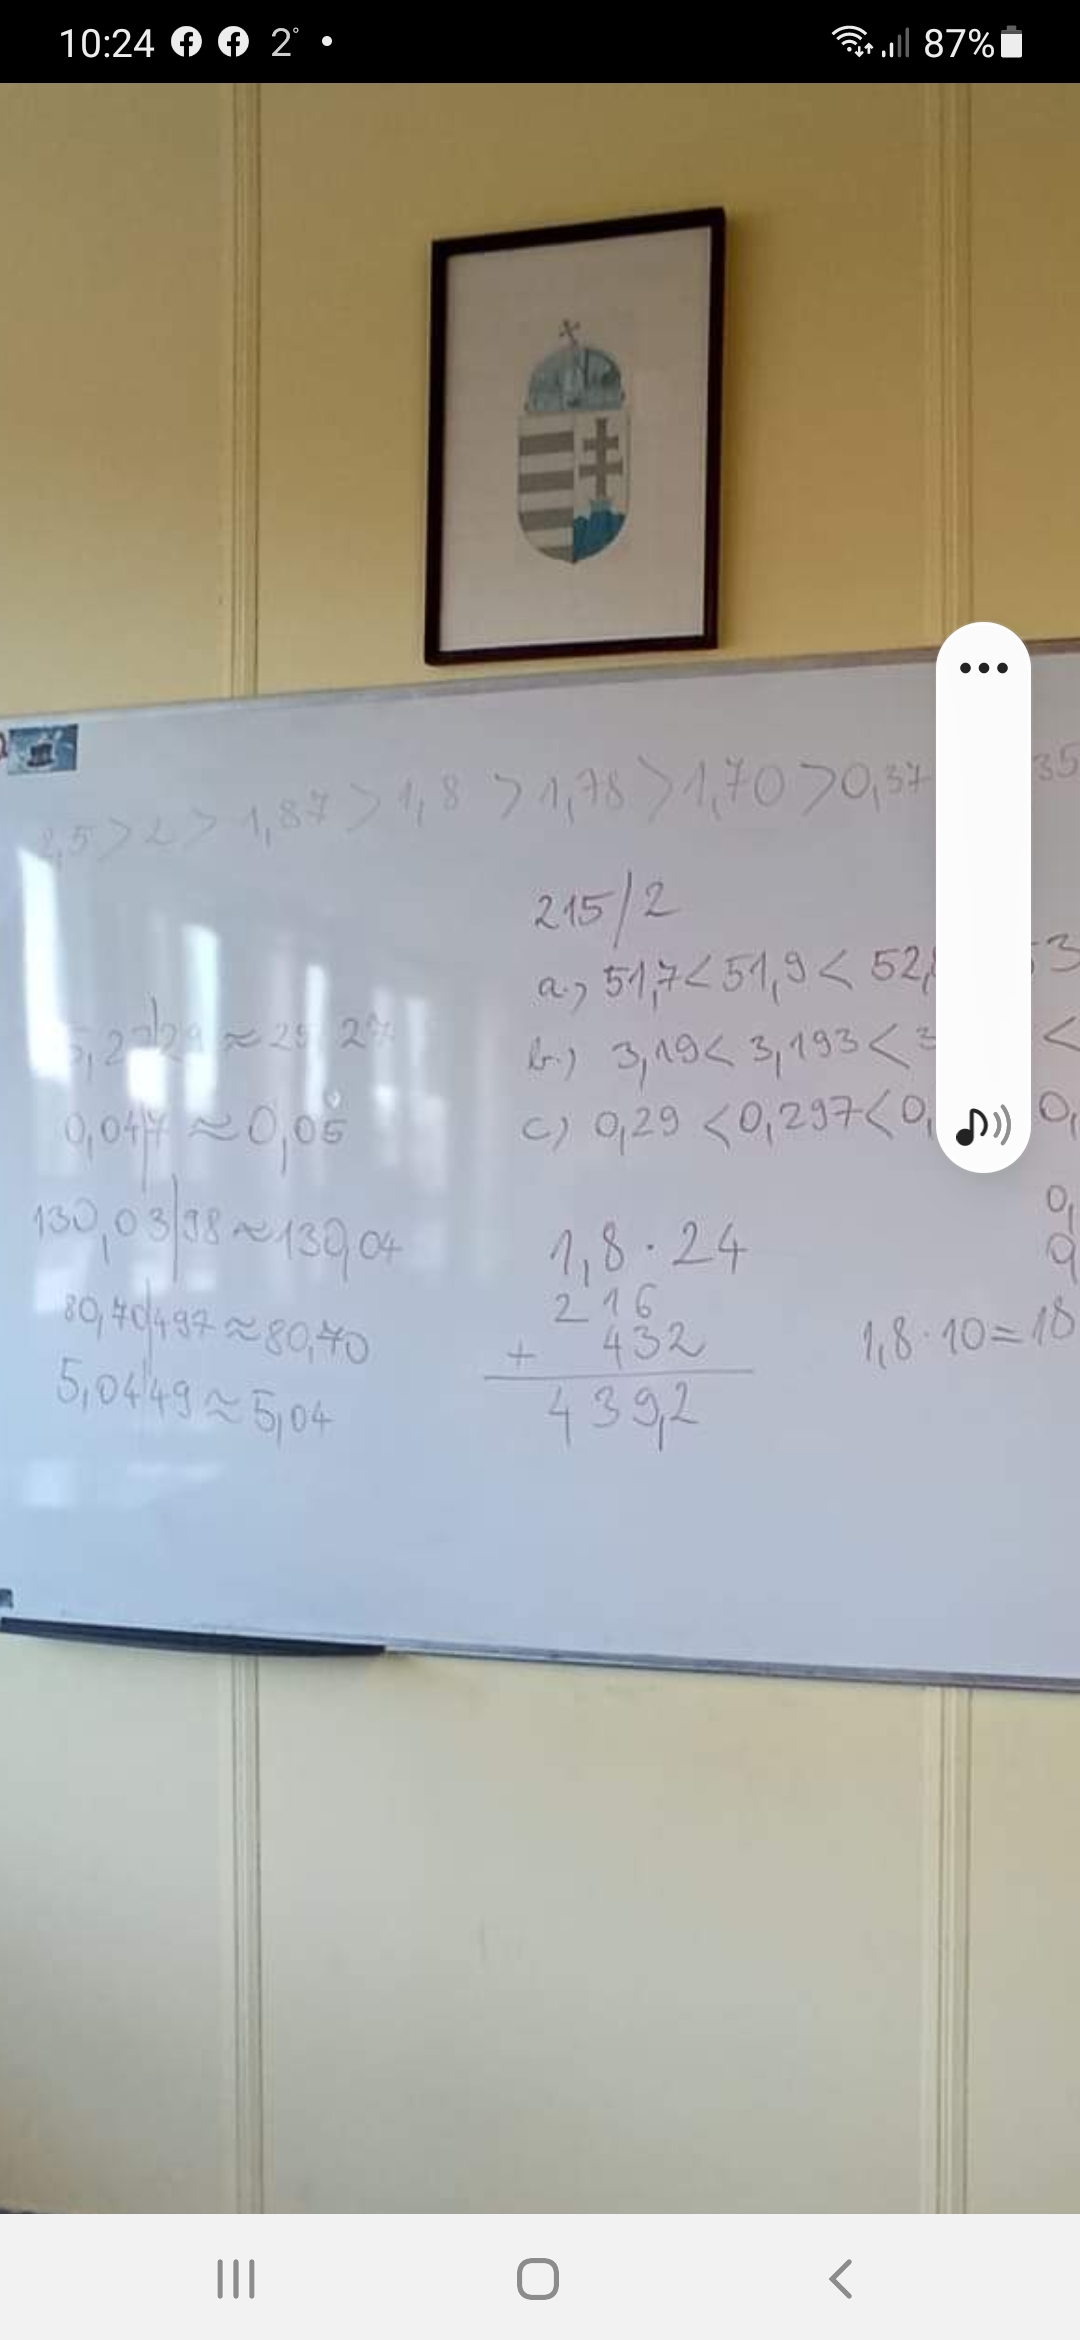 10:24 2° 87%
2,5 > 2 > 1,87 > 1,8 > 1,78 > 1,70 > 0,37 35
215/2
a.) 51,7 < 51,9 < 52, 53
5,27|29 ≈ 25,27
b.) 3,19 < 3,193 < 3 <
0,04|7 ≈ 0,05
c) 0,29 < 0,297 < 0, 0,
130,03|98 ≈ 130,04
0,
1,8 · 24
80,70|497 ≈ 80,70
216
+ 432
1,8 · 10 = 18
5,04|49 ≈ 5,04
439,2